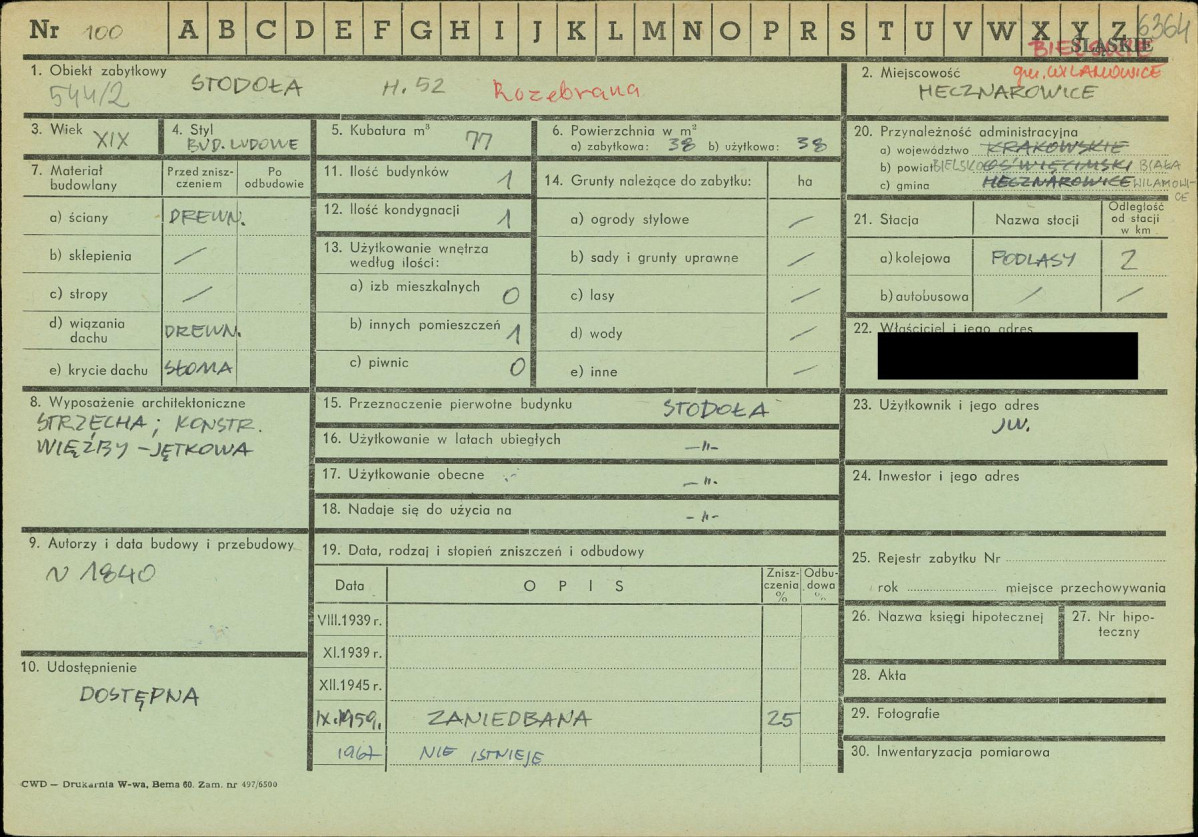 Nr 100 A B C D E F G H I J K L M N O P R S T U V W X Y Z 6364
BIELSKIE ŚLĄSKIE
1. Obiekt zabytkowy
544/2 STODOŁA H. 52 Rozebrana
2. Miejscowość gm. WILAMOWICE
HECZNAROWICE
3. Wiek XIX
4. Styl
BUD. LUDOWE
5. Kubatura m³ 77
6. Powierzchnia w m²
a) zabytkowa: 38 b) użytkowa: 38
7. Materiał budowlany
Przed zniszczeniem
Po odbudowie
a) ściany DREWN.
b) sklepienia /
c) stropy /
d) wiązania dachu DREWN.
e) krycie dachu SŁOMA
8. Wyposażenie architektoniczne
STRZECHA; KONSTR.
WIĘŹBY - JĘTKOWA
9. Autorzy i data budowy i przebudowy
N 1840
10. Udostępnienie
DOSTĘPNA
11. Ilość budynków 1
12. Ilość kondygnacji 1
13. Użytkowanie wnętrza
według ilości:
a) izb mieszkalnych 0
b) innych pomieszczeń 1
c) piwnic 0
14. Grunty należące do zabytku: ha
a) ogrody stylowe /
b) sady i grunty uprawne /
c) lasy /
d) wody /
e) inne /
15. Przeznaczenie pierwotne budynku STODOŁA
16. Użytkowanie w latach ubiegłych -"-
17. Użytkowanie obecne -"-
18. Nadaje się do użycia na -"-
19. Data, rodzaj i stopień zniszczeń i odbudowy
Data OPIS Zniszczenia % Odbudowa %
VIII.1939 r.
XI.1939 r.
XII.1945 r.
IX.1959. ZANIEDBANA 25
1967 NIE ISTNIEJE
20. Przynależność administracyjna
a) województwo KRAKOWSKIE
b) powiat BIELSKO OŚWIĘCIMSKI BIAŁA
c) gmina HECZNAROWICE WILAMOWICE
21. Stacja Nazwa stacji Odległość od stacji w km
a) kolejowa PODLASY 2
b) autobusowa / /
22. Właściciel i jego adres
23. Użytkownik i jego adres
JW.
24. Inwestor i jego adres
25. Rejestr zabytku Nr
rok miejsce przechowywania
26. Nazwa księgi hipotecznej
27. Nr hipoteczny
28. Akta
29. Fotografie
30. Inwentaryzacja pomiarowa
CWD — Drukarnia W-wa, Bema 60. Zam. nr 497/6500